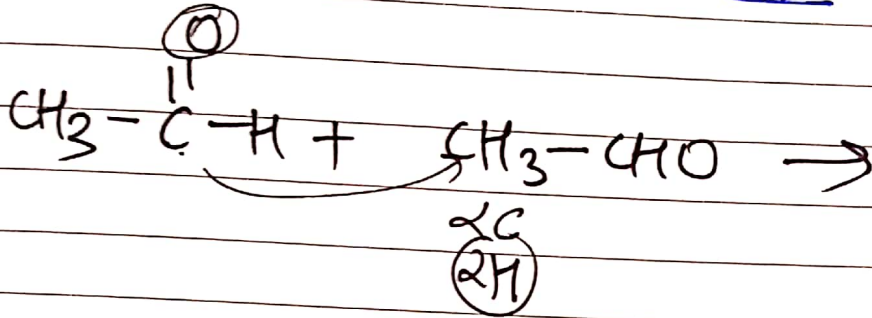 O
||
CH3-C-H + CH3-CHO →
αC
2H